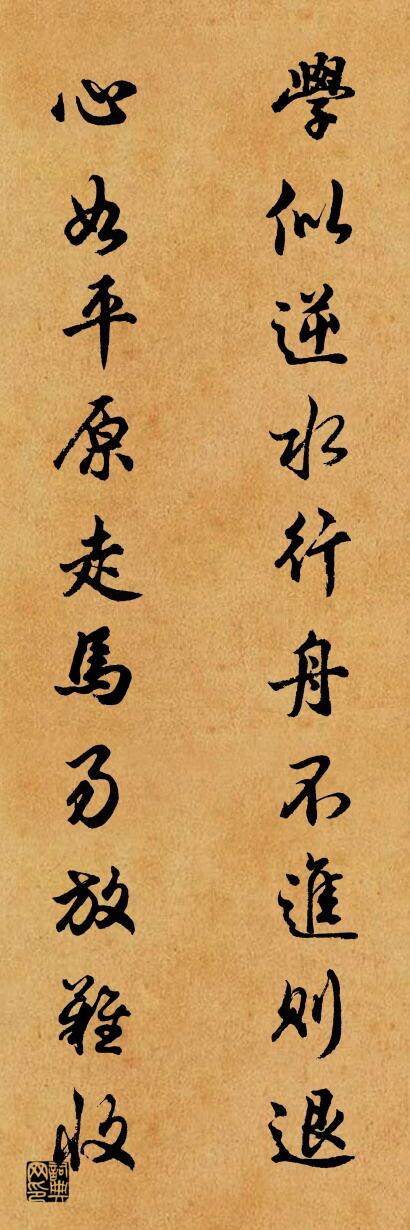 學似逆水行舟不進則退
心如平原走馬易放難收
詞典网印